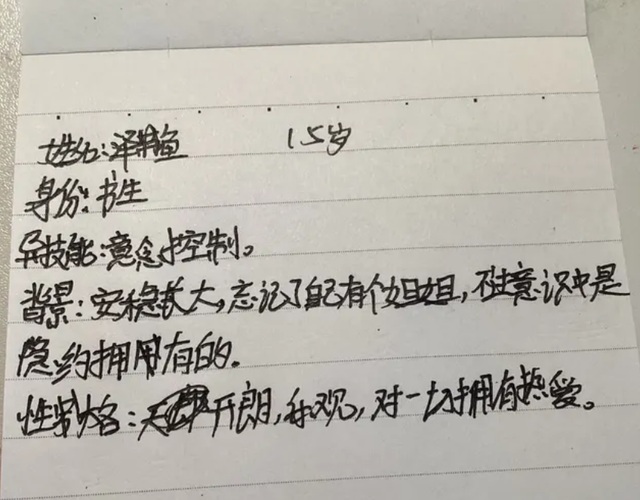 姓名:泽鱼 15岁
身份:书生
异技能:意念控制。
背景:安稳长大,忘记了自己有个姐姐,不过意识中是
隐约拥有的。
性格:天开朗,乐观,对一切拥有热爱。